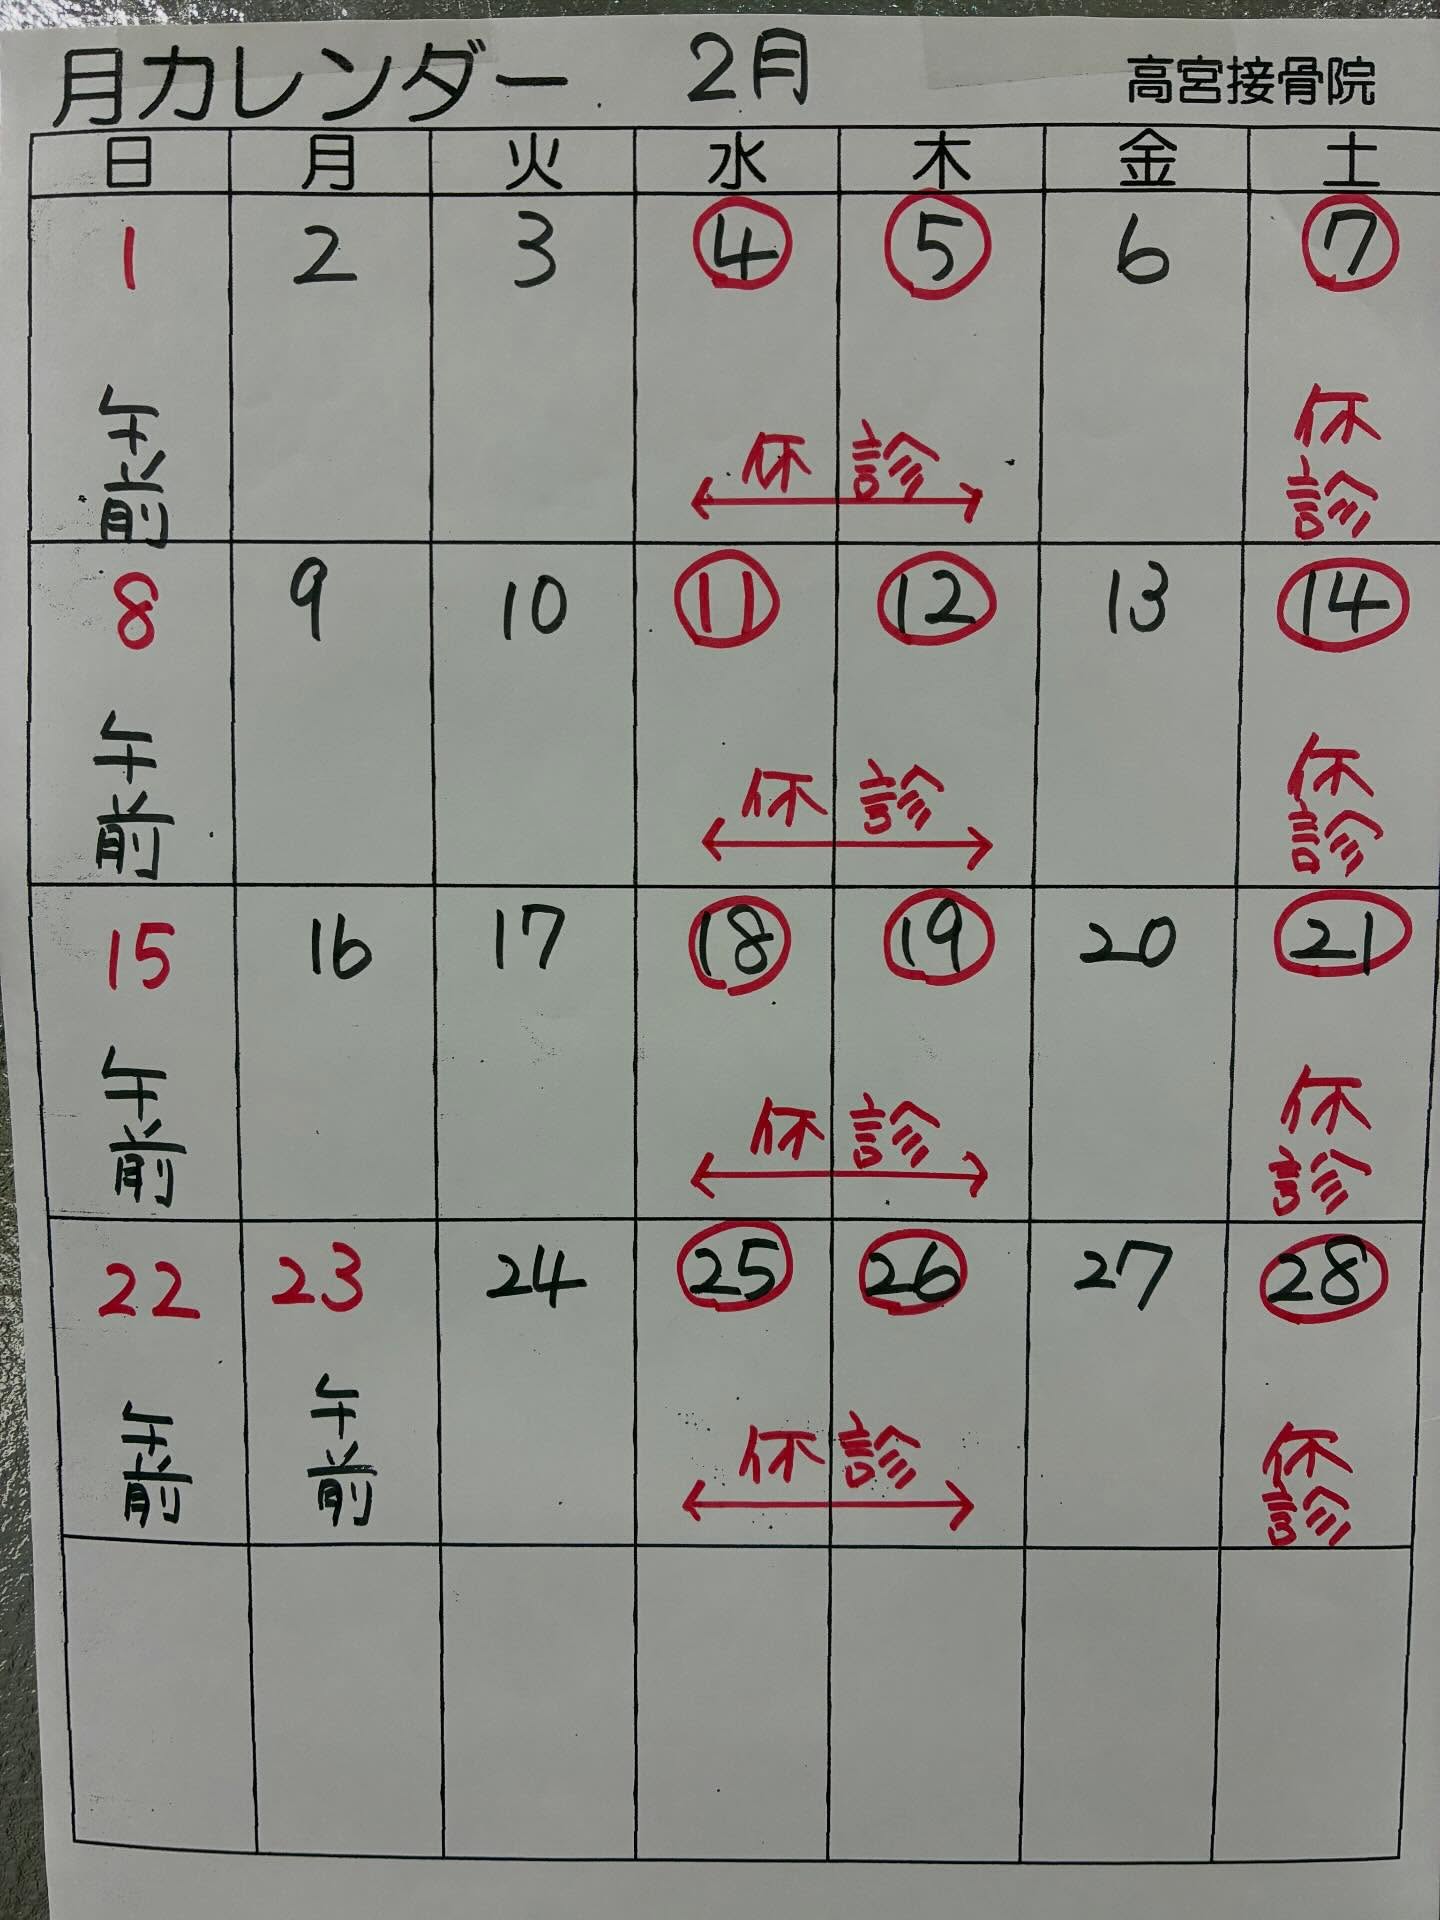 月カレンダー 2月 高宮接骨院
日 月 火 水 木 金 土
1 2 3 4 5 6 7
午前 休診 休診
8 9 10 11 12 13 14
午前 休診 休診
15 16 17 18 19 20 21
午前 休診 休診
22 23 24 25 26 27 28
午前 午前 休診 休診